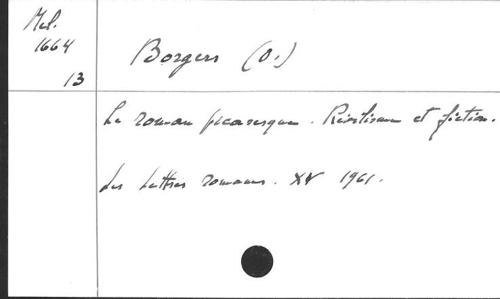 Mel.
1664
13
Borgers (O.)
Le roman picaresque. Réalisme et fiction.
Les Lettres romanes. XV 1961.